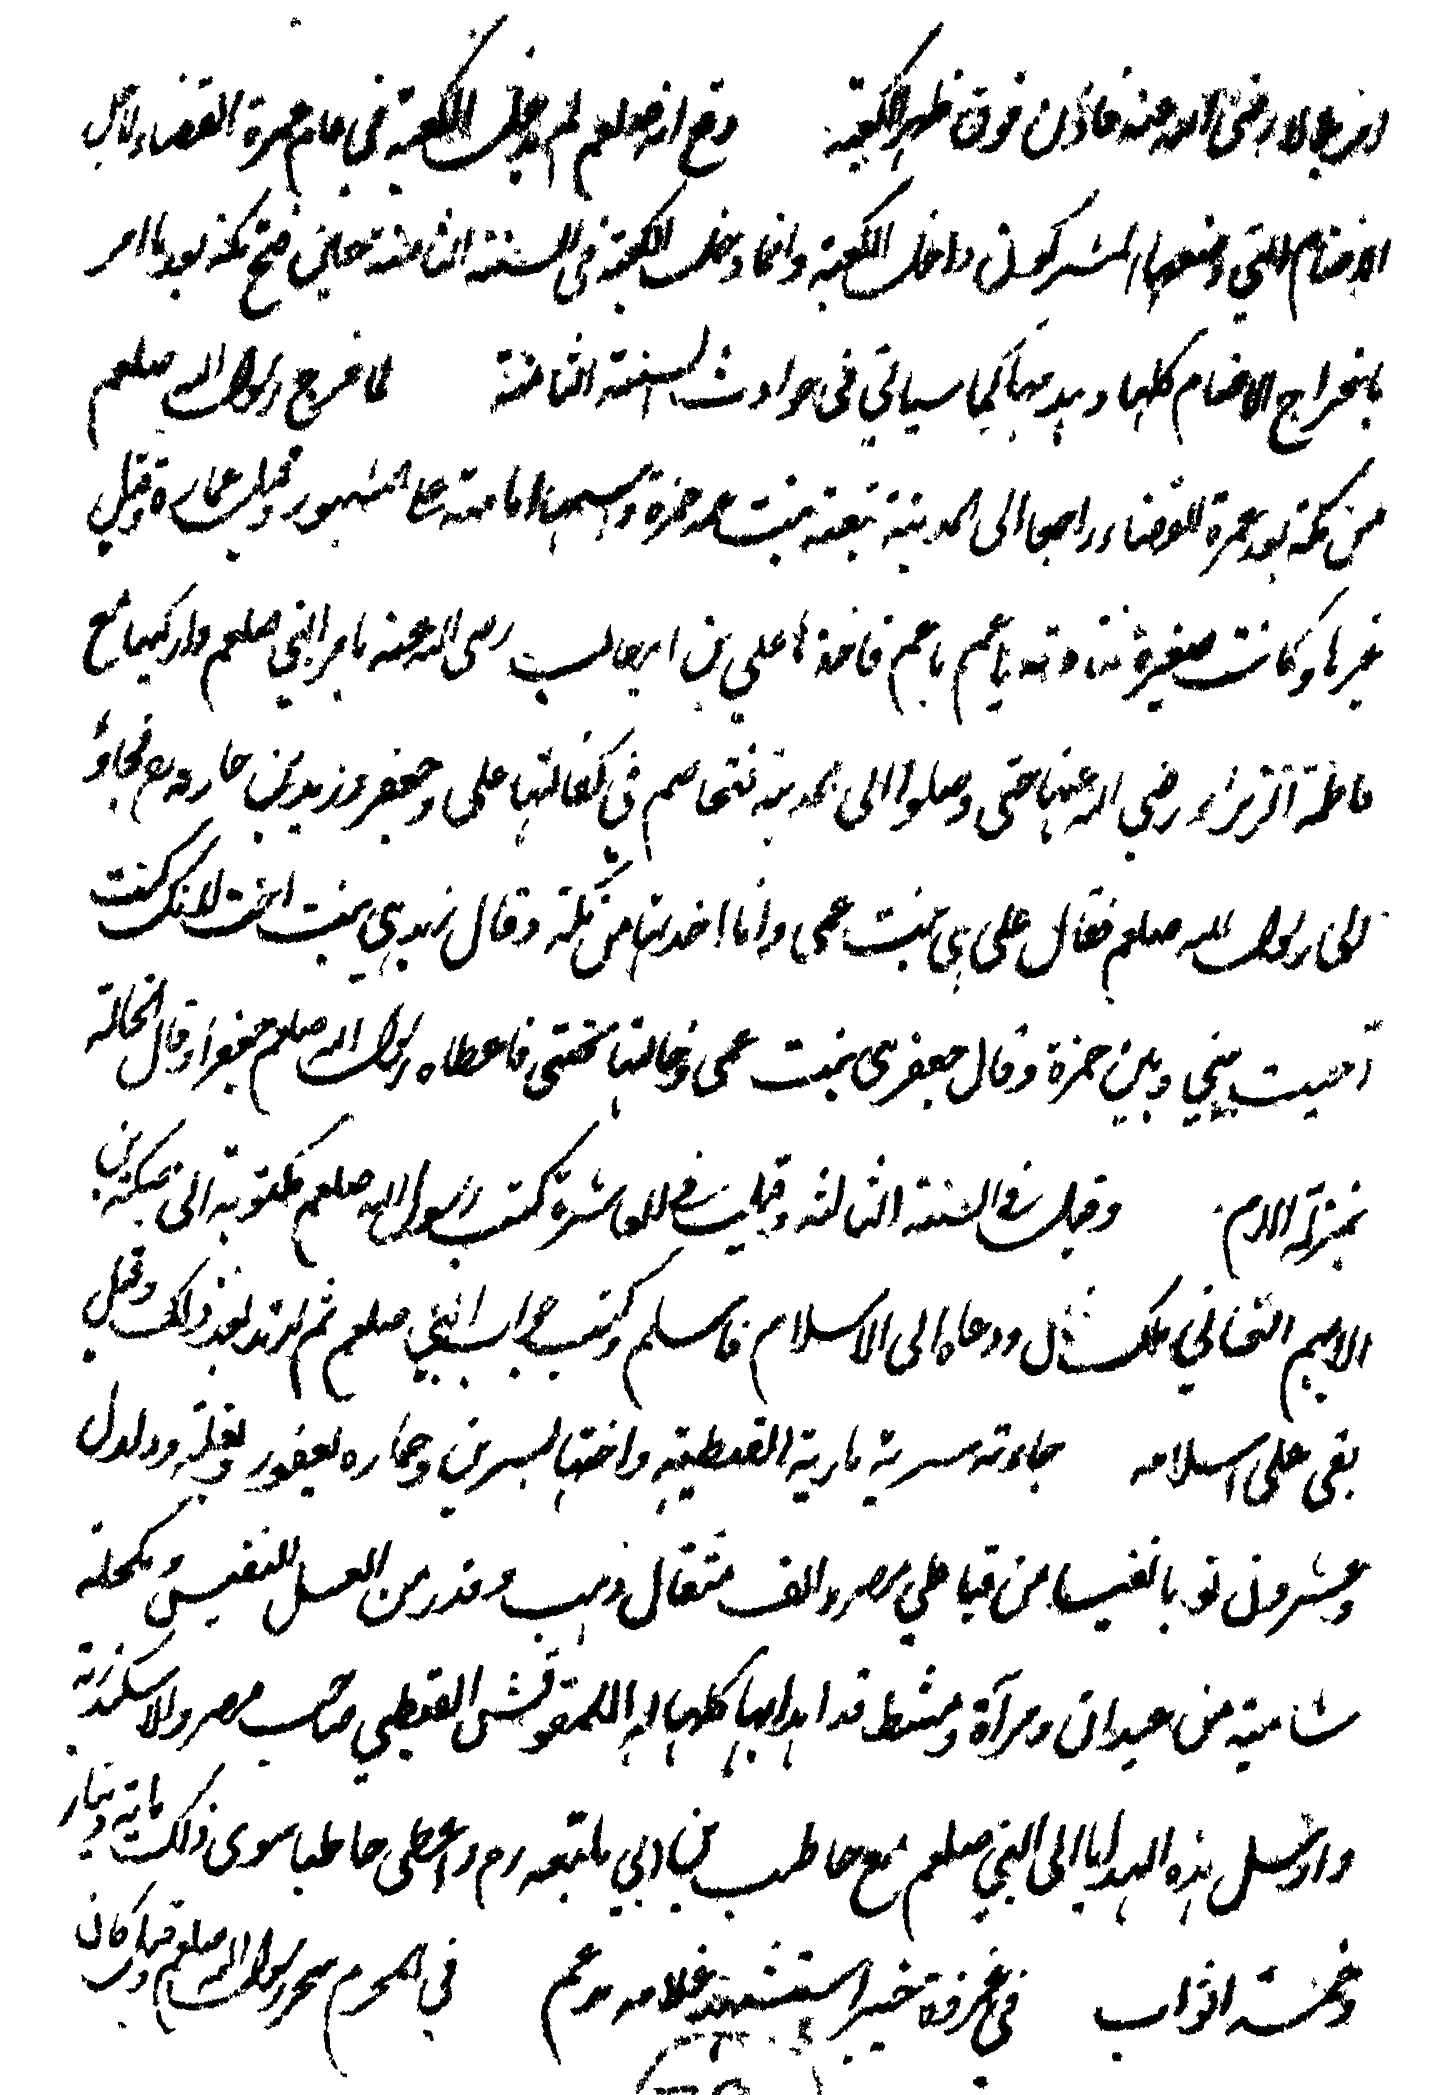 امر بلالا رضى الله عنه فاذن فوق ظهر الكعبة وقع انه صلعم لم يدخل الكعبة في عام عمرة القضاء لاجل
الاصنام التي وضعها المشركون داخل الكعبة وانما دخل الكعبة في السنة الثامنة حين فتح مكة بعد ما امر
باخراج الاصنام كلها وهدمها كما سياتي في حوادث السنة الثامنة لما خرج رسول الله صلعم
من مكة بعد عمرة القضاء راجعا الى المدينة تبعته بنت عمه حمزة واسمها امامة على المشهور وقيل عمارة وقيل
غيرها وكانت صغيرة تناديه يا عم يا عم فاخذها علي بن ابيطالب رضى الله عنه بامر النبي صلعم واركبها مع
فاطمة الزهراء رضي الله عنها حتى وصلوا الى المدينة فتخاصم في كفالتها علي وجعفر وزيد بن حارثة فجاؤ
الى رسول الله صلعم فقال علي هي بنت عمى وانا اخذتها من مكة وقال زيد هي بنت اخي لانك كنت
آخيت بيني وبين حمزة وقال جعفر هى بنت عمى وخالتها تحتى فاعطاه رسول الله صلعم جعفرا وقال الخالة
بمنزلة الام وقيل في السنة الثالثة وقيل في العاشرة كتب رسول الله صلعم مكتوبة الى جبلة بن
الايهم الغساني ملك غسان ودعاه الى الاسلام فاسلم وكتب جواب النبي صلعم ثم ارتد بعد ذلك وقيل
بقى على اسلامه جاءته سرية مارية القبطية واختها سيرين وحماره يعفور وبغلته دلدل
وعشرون ثوبا نفيسا من قباطي مصر والف مثقال ذهب وقدر من العسل النفيس ومكحلة
شامية من عيدان ومرآة ومشط قد اهداها كلها له المقوقش القبطي صاحب مصر والاسكندرية
وارسل هذه الهدايا الى النبي صلعم مع حاطب بن ابي بلتعة رم واعطى حاطبا سوى ذلك مائة دينار
وخمسة اثواب في غزوة خيبر استشهد غلامه مدعم في المحرم سحر رسول الله صلعم وقيل كان